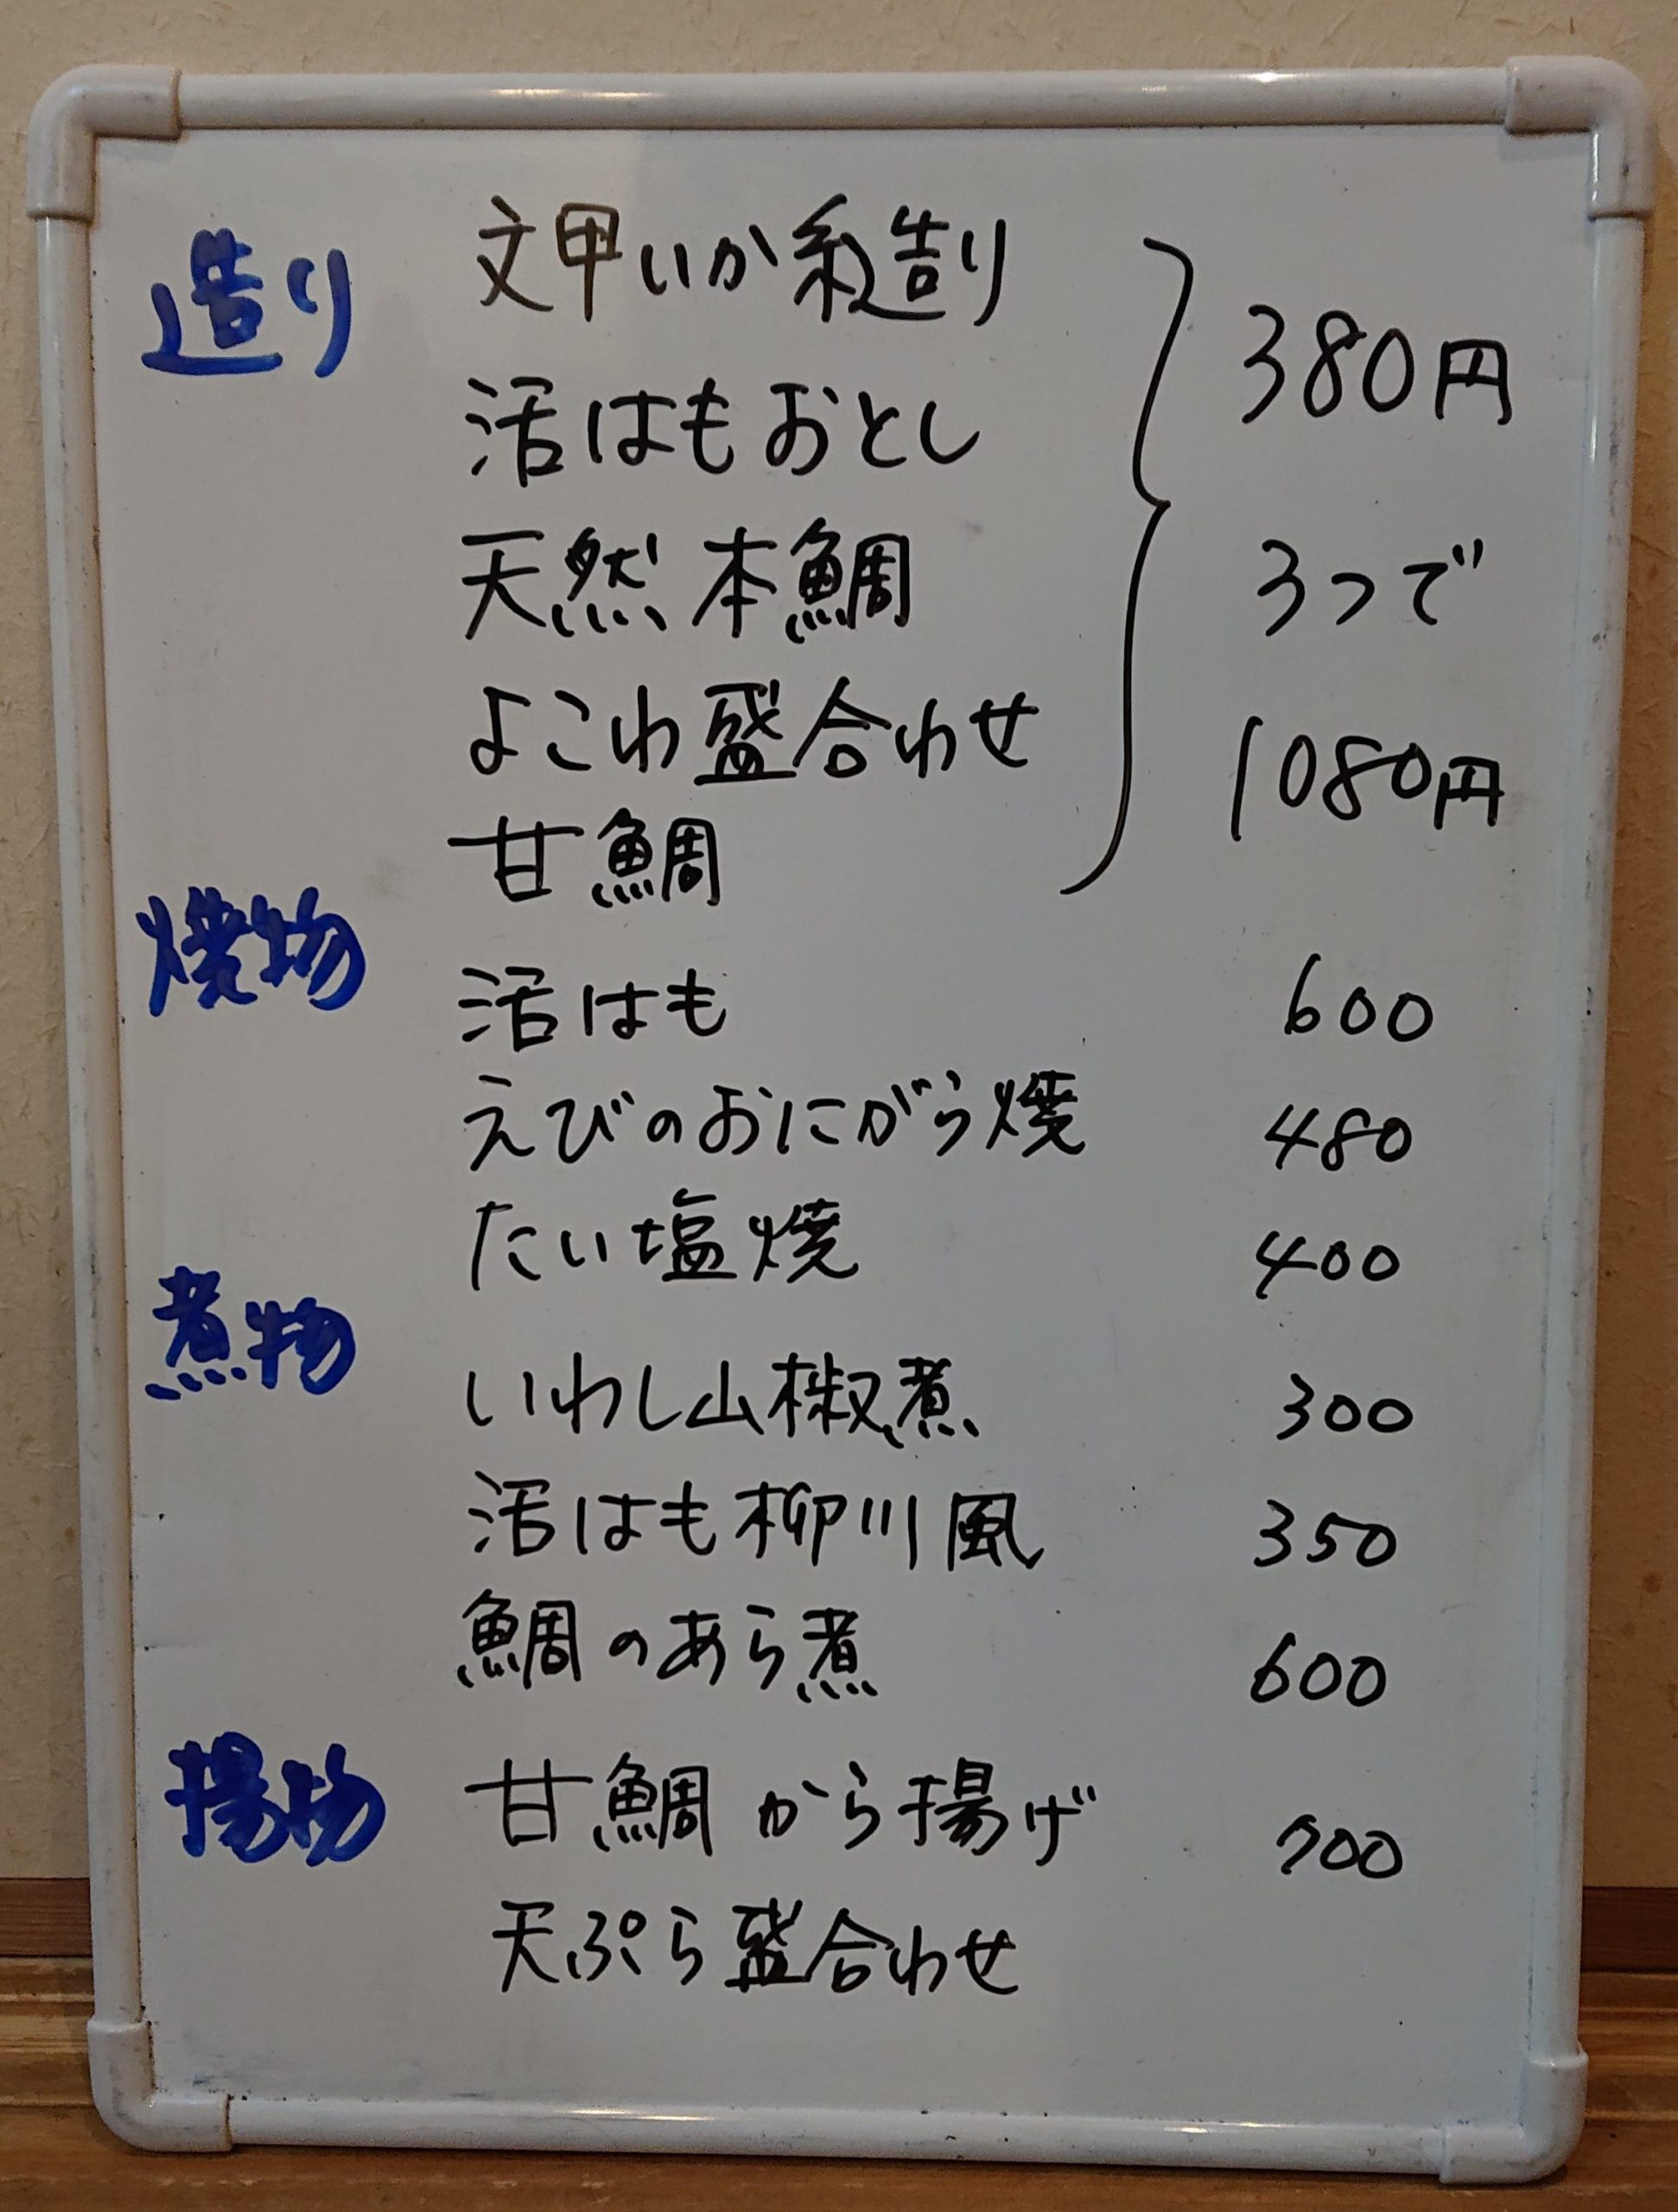 造り
文甲いか糸造り
活はもおとし
天然本鯛
よこわ盛合わせ
甘鯛
380円
3つで
1080円
焼物
活はも 600
えびのおにがら焼 480
たい塩焼 400
煮物
いわし山椒煮 300
活はも柳川風 350
鯛のあら煮 600
揚物
甘鯛から揚げ 700
天ぷら盛合わせ